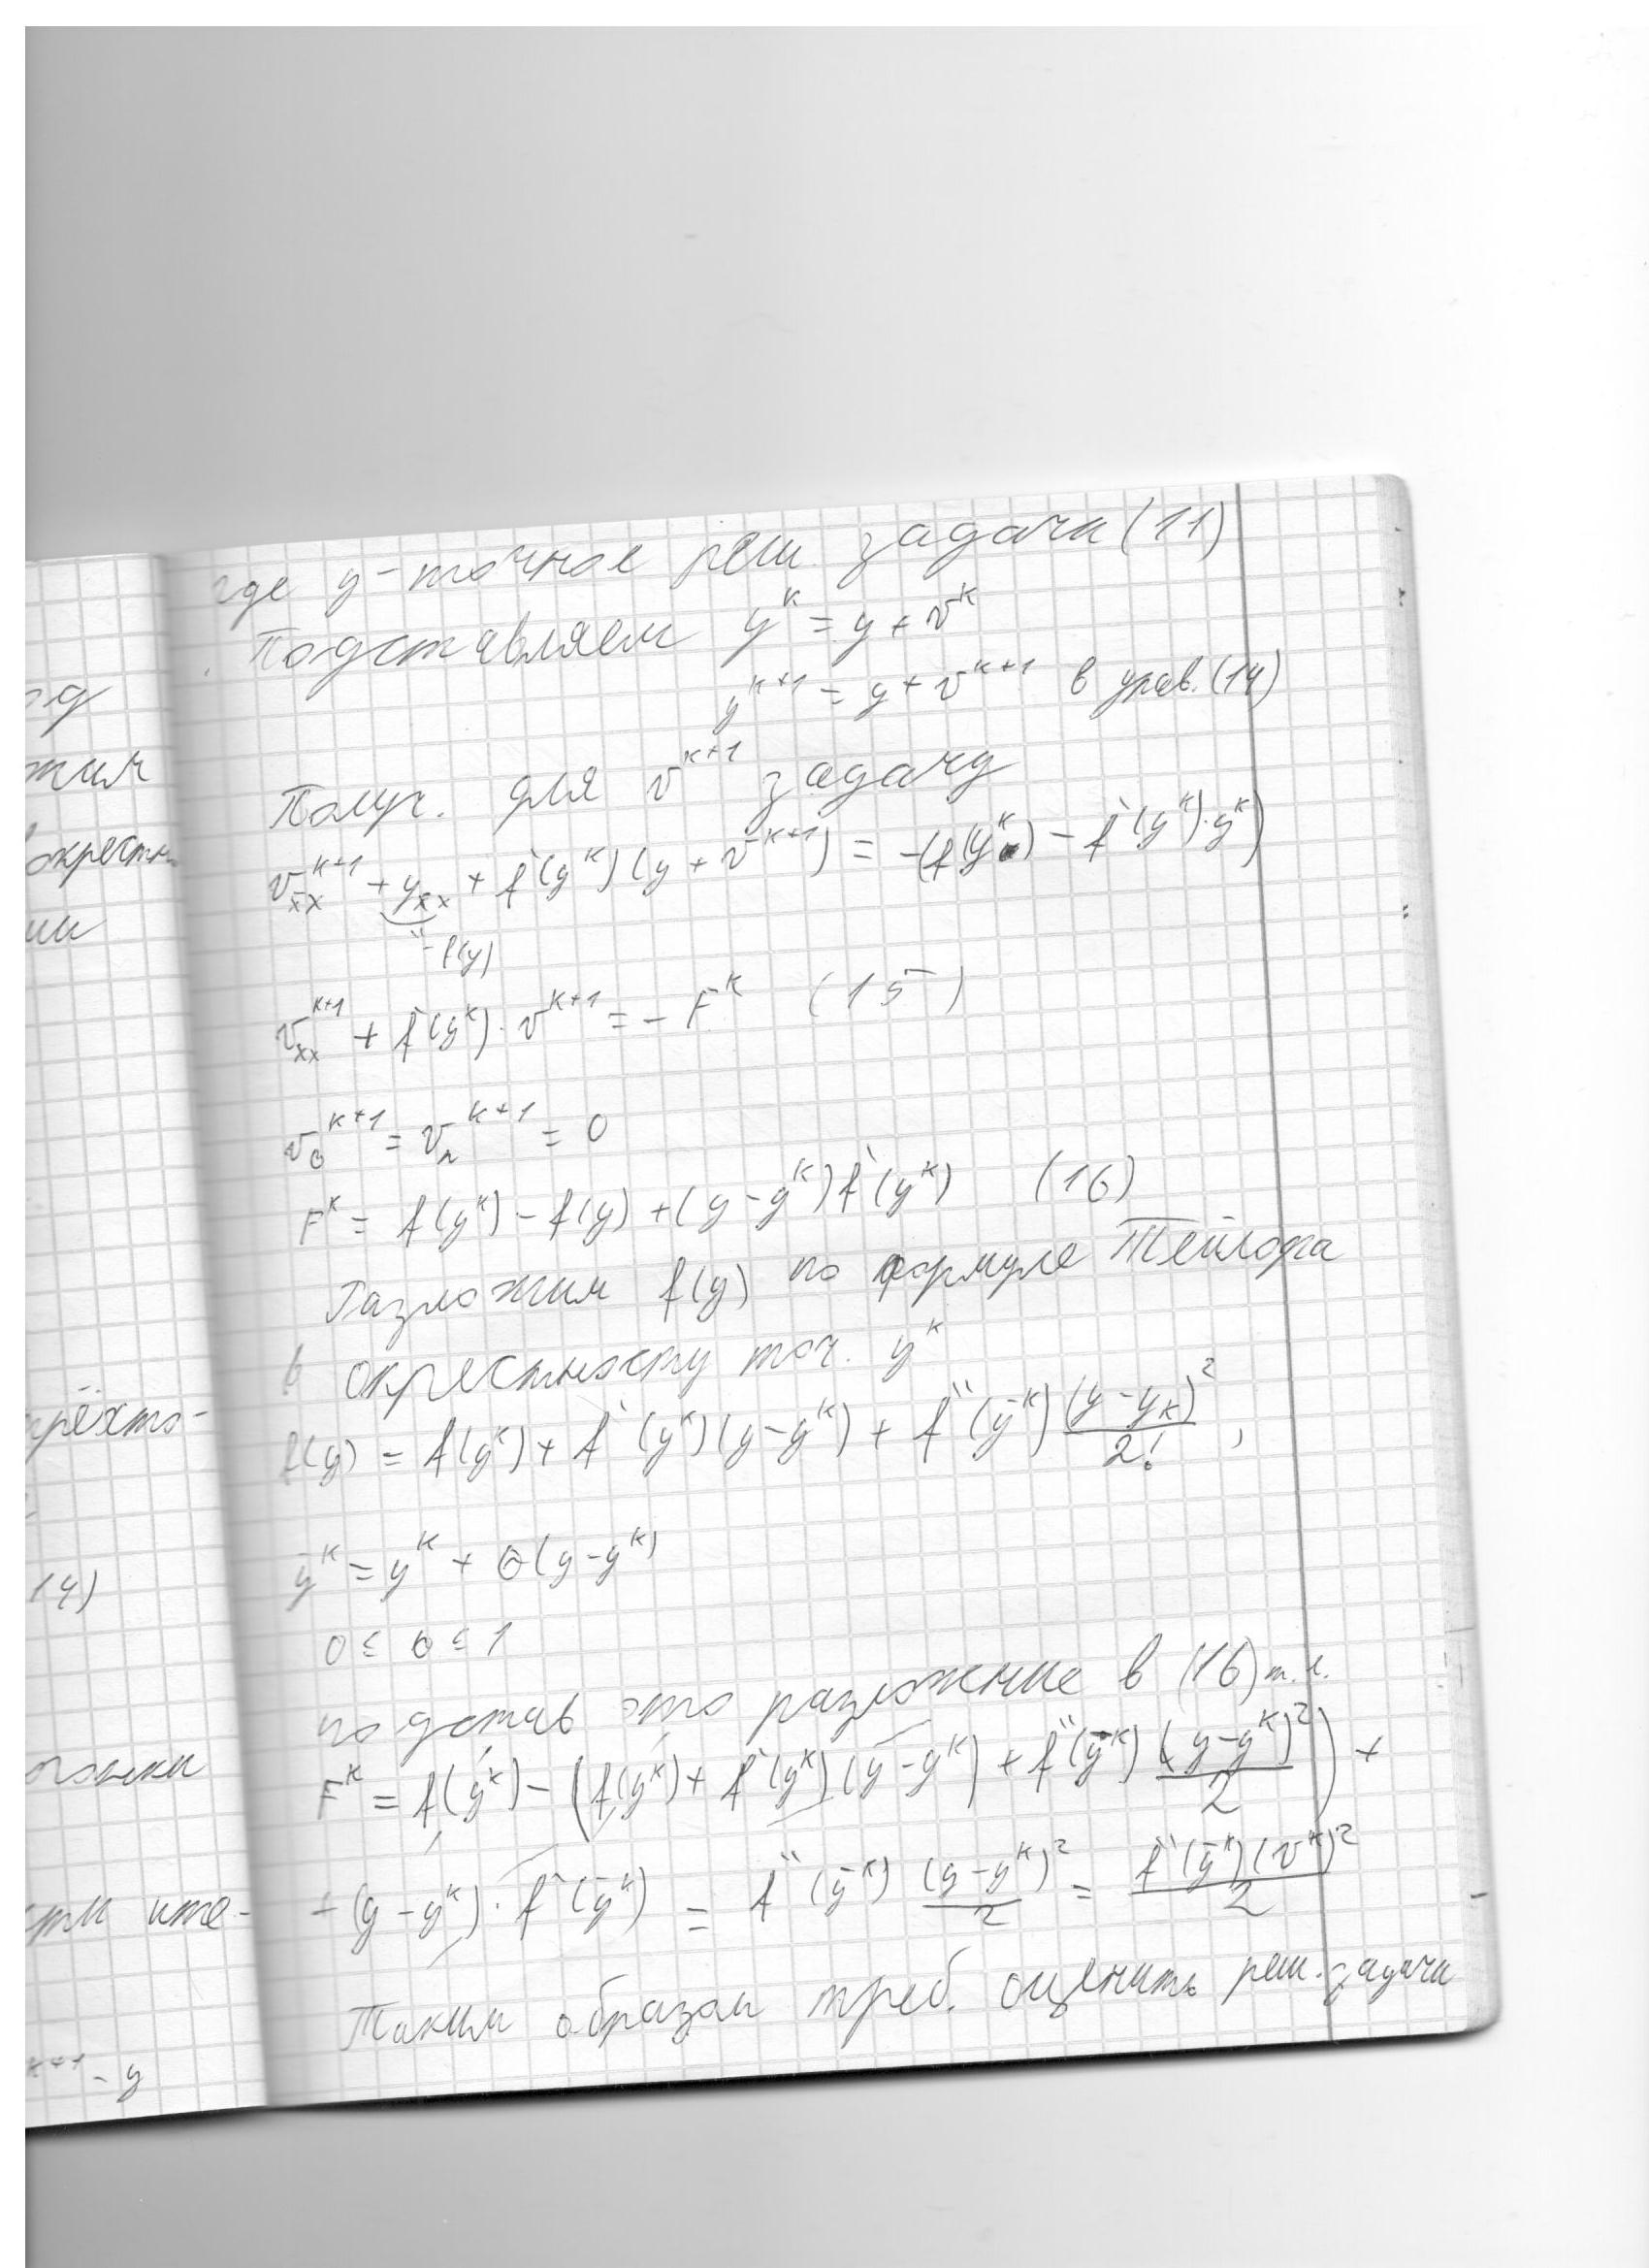 где y - точное реш. задачи (11)
Подставляем y^k = y + v^k
y^{k+1} = y + v^{k+1} в урав. (14)
Получ. для v^{k+1} задачу
v_{x̄x}^{k+1} + y_{x̄x} + f'(y^k)(y + v^{k+1}) = -(f(y^k) - f'(y^k)·y^k)
" -f(y)
v_{x̄x}^{k+1} + f'(y^k)·v^{k+1} = -F^k (15)
v_0^{k+1} = v_n^{k+1} = 0
F^k = f(y^k) - f(y) + (y - y^k) f'(y^k) (16)
Разложим f(y) по формуле Тейлора
в окрестносту точ. y^k
f(y) = f(y^k) + f'(y^k)(y - y^k) + f''(ȳ^k) (y - y_k)^2 / 2! ,
ȳ^k = y^k + θ(y - y^k)
0 ≤ θ ≤ 1
подстав это разложение в (16)
F^k = f(y^k) - (f(y^k) + f'(y^k)(y - y^k) + f''(ȳ^k) (y - y^k)^2 / 2) +
+ (y - y^k)·f'(y^k) = f''(ȳ^k) (y - y^k)^2 / 2 = f''(ȳ^k)(v^k)^2 / 2
Таким образом треб. оценить реш. задачи
окрестн
трёхто-
14)
ите-
k+1 - y